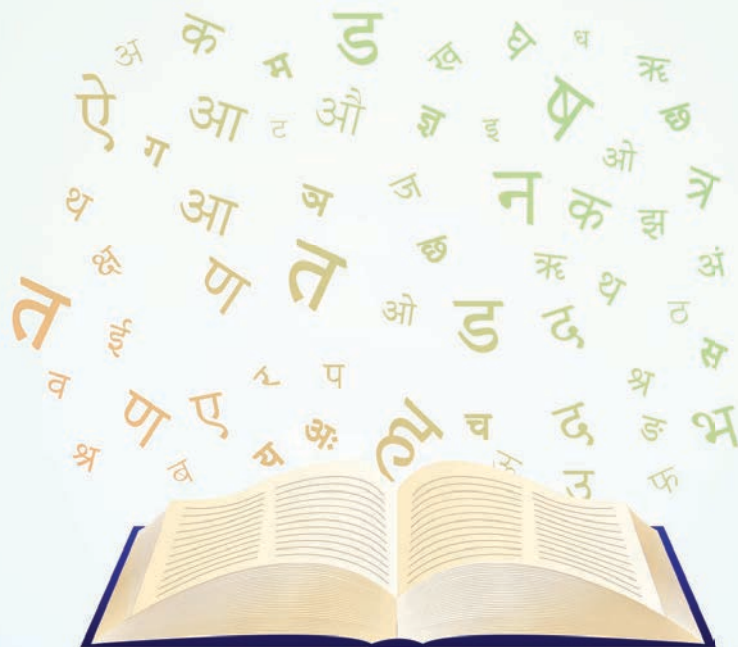 अ क म ड ख घ ध ऋ
ऐ ग आ ट औ ज्ञ इ ष ओ छ
थ आ ञ ज न क झ त्र
क्ष ण त छ ऋ थ अं
त ई ओ ड ढ ठ स
व ण ए र प श्र
श्र ब च अः ल च ढ ङ भ
ऊ उ फ